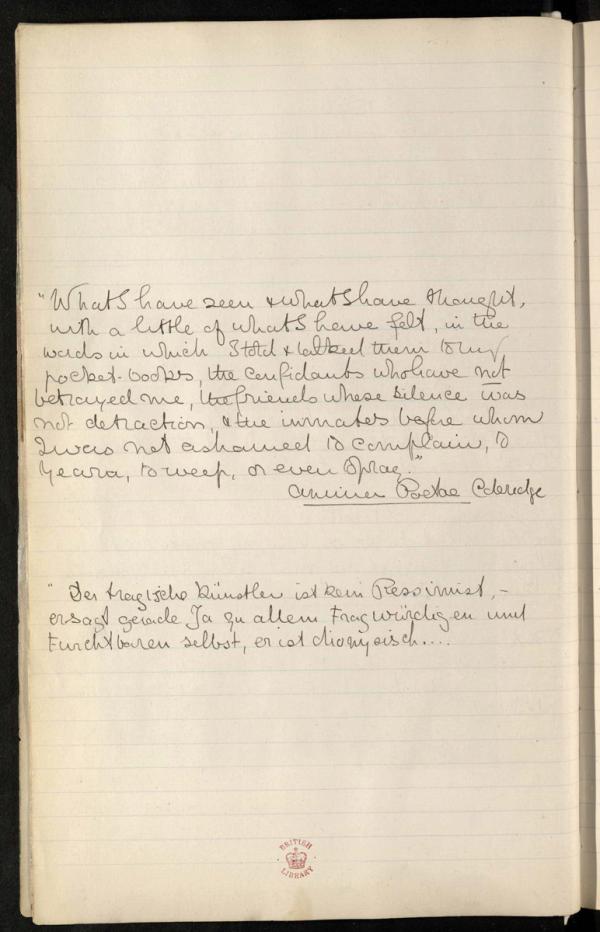 "What I have seen & what I have thought,
with a little of what I have felt, in the
words in which I told & talked them to my
pocket-books, the confidants who have not
betrayed me, the friends whose silence was
not detraction, & the inmates before whom
I was not ashamed to complain, to
yearn, to weep, or even to pray."
Animae Poetae Coleridge
" Der tragische Künstler ist kein Pessimist, –
er sagt gerade Ja zu allem Fragwürdigen und
Furchtbaren selbst, er ist dionysisch....
BRITISH
LIBRARY